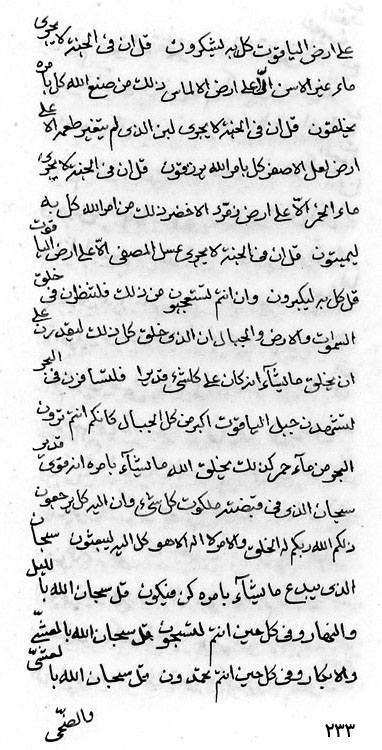 على ارض الياقوت كل به ليشكرون قل ان فى الجنة لا يجرى
ماء غير الاسن الا على ارض الالماس ذلك من صنع الله كل بامره
يخلقون قل ان فى الجنة لا يجرى لبن الذى لم يتغير طعمه الا على
ارض لعل الاصفر كل بامر الله يرزقون قل ان فى الجنة لا يجرى
ماء الخمر الا على ارض زمرد الاخضر ذلك من امر الله كل به
ليميتون قل ان فى الجنة لا يجرى عسل المصفى الا على ارض الياقوت
قل كل به ليكبرون وان انتم لتستعجبون من ذلك فلتنظرن فى خلق
السموات والارض والجبال ان الذى خلق كل ذلك ليقدرن على
ان يخلق ما يشآء انه كان على كلشئ قديرا فلتسافرن فى البحر
لتشهدن جبل الياقوت اكبر من كل الجبال كانكم انتم ترون
البحر من مآء حمر كذلك يخلق الله ما يشآء بامره انه قوى قدير
سبحان الذى فى قبضته ملكوت كل شئ وان اليه كل يرجعون
ذلكم الله ربكم له الخلق والامر لا اله الا هو كل اليه ليبعثون سبحان
الذى يبدع ما يشآء بامره كن فيكون قل سبحان الله بالليل
والنهار وفى كل حين انتم لتسبحون قل سبحان الله بالعشى
والابكار وفى كل حين انتم تحمدون قل سبحان الله بالعشى
والضحى
٢٣٣